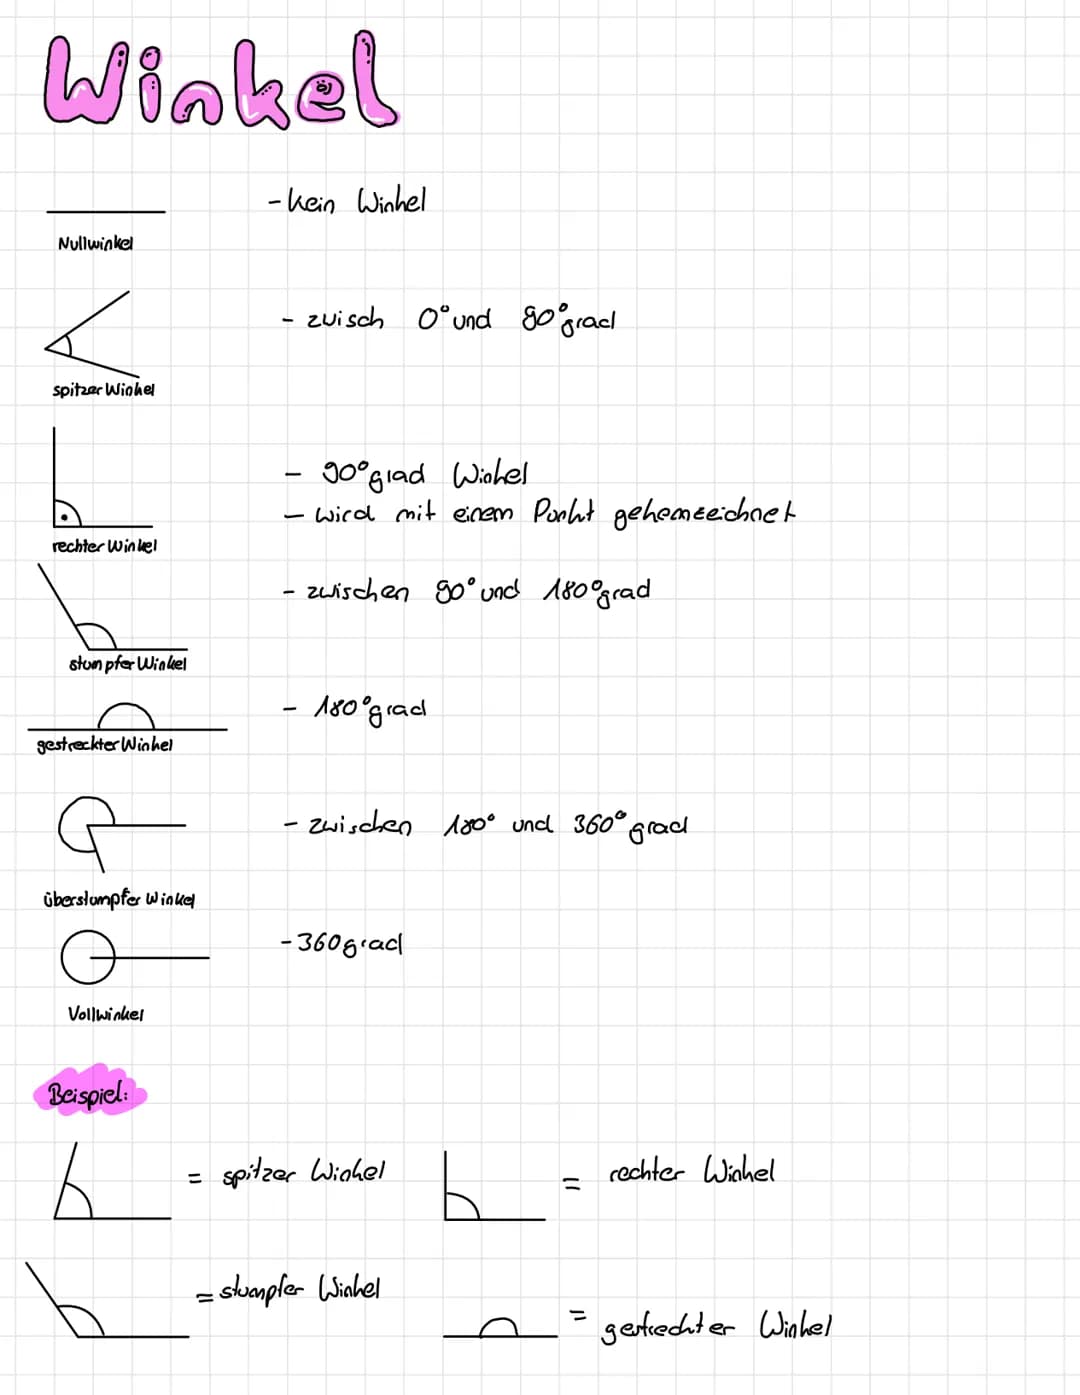 Winkel
- kein Winkel
Nullwinkel
- zwisch 0° und 90° grad
spitzer Winkel
- 90° grad Winkel
- wird mit einem Punkt gekennzeichnet
rechter Winkel
- zwischen 90° und 180° grad
stumpfer Winkel
- 180° grad
gestreckter Winkel
- zwischen 180° und 360° grad
überstumpfer Winkel
- 360 grad
Vollwinkel
Beispiel:
= spitzer Winkel
= rechter Winkel
= stumpfer Winkel
= gestreckter Winkel